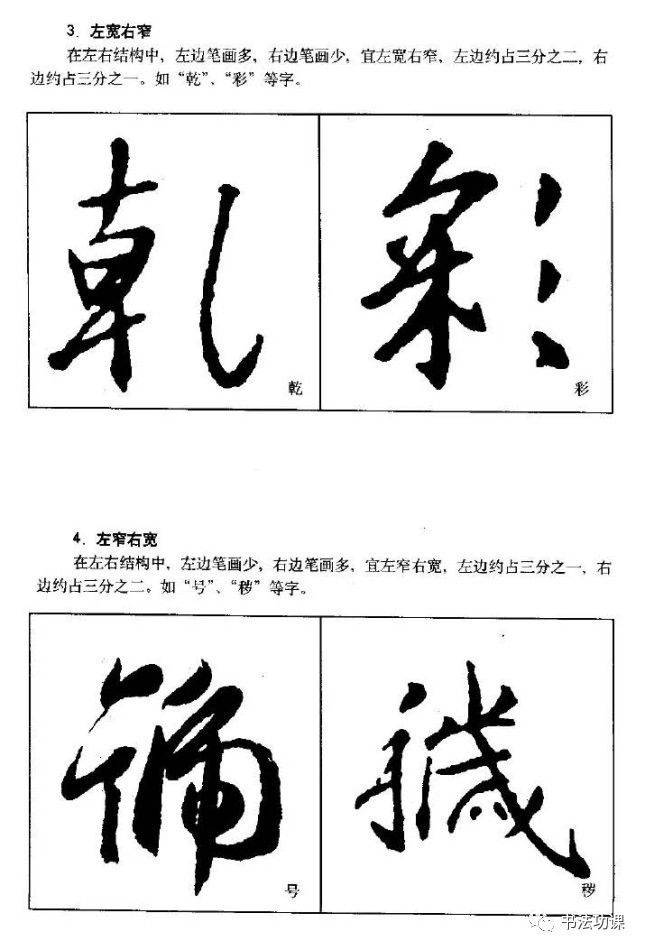 3．左宽右窄
在左右结构中，左边笔画多，右边笔画少，宜左宽右窄，左边约占三分之二，右
边约占三分之一。如“乾”、“彩”等字。
乾 彩
乾 彩
4．左窄右宽
在左右结构中，左边笔画少，右边笔画多，宜左窄右宽，左边约占三分之一，右
边约占三分之二。如“号”、“秽”等字。
號 穢
号 秽
书法功课